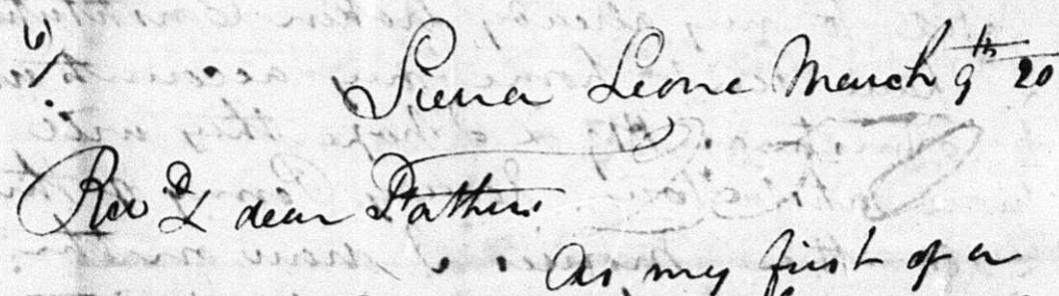 6/
Sierra Leone March 9th 20
Revd & dear Fathers
As my first of a